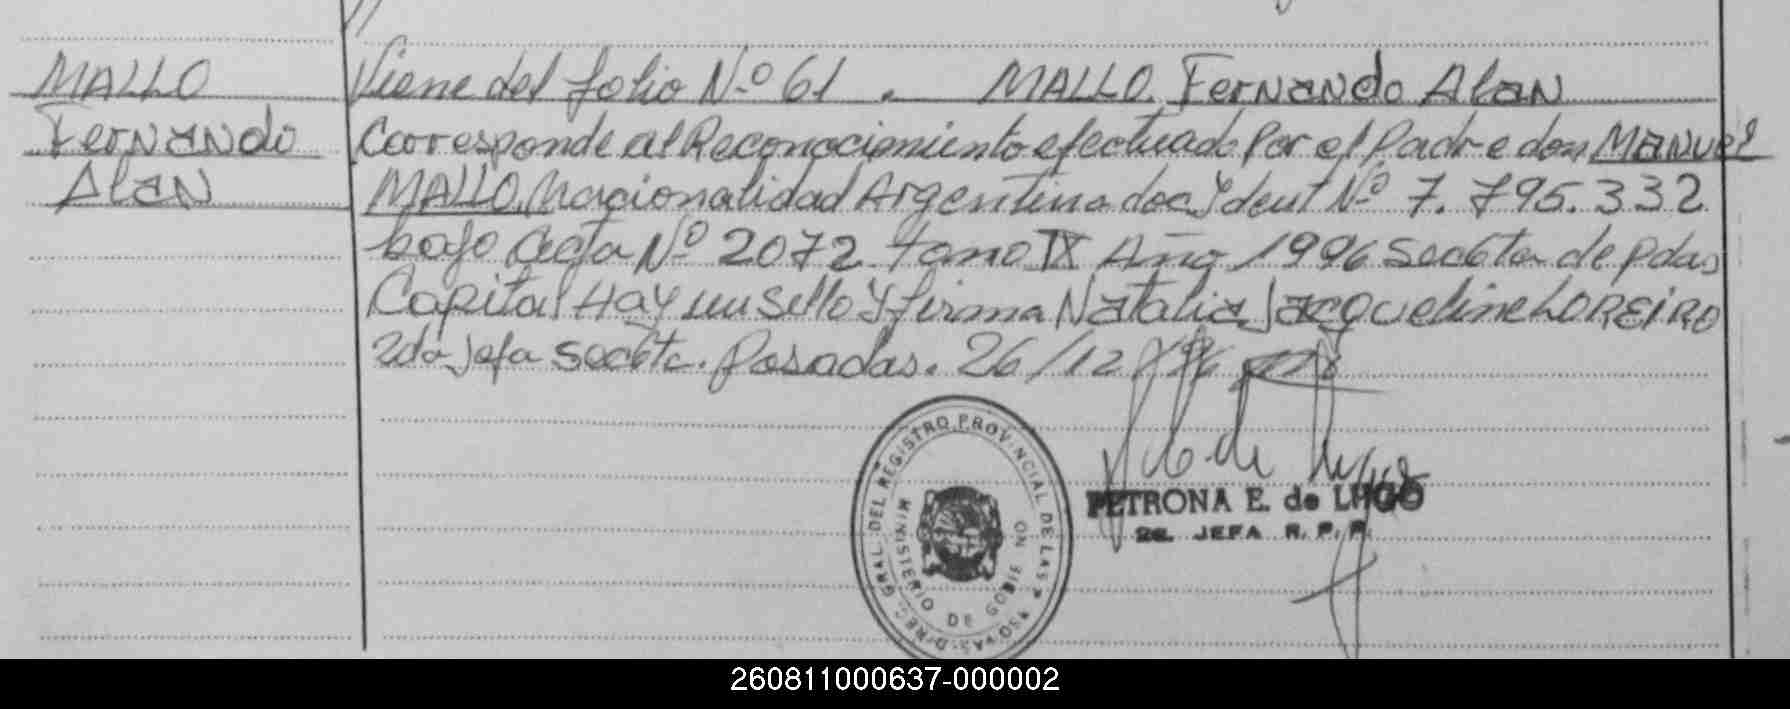 MALLO
Fernando
Alan
Viene del folio Nº 61 . MALLO, Fernando Alan
Corresponde al Reconocimiento efectuado Por el Padre don Manuel
MALLO, Nacionalidad Argentina doc Y dent Nº 7.795.332
bajo Acta Nº 2072 tomo IX Año 1996 Seccta de Pdas
Capital Hay un Sello Y firma Natalia Jacqueline LOREIRO
2da Jefa Seccta. Posadas. 26/12/96
DIREC. GRAL. DEL REGISTRO PROVINCIAL DE LAS PERSONAS
MINISTERIO DE GOBIERNO
PETRONA E. de LUGO
2a. JEFA R. P. P.
260811000637-000002